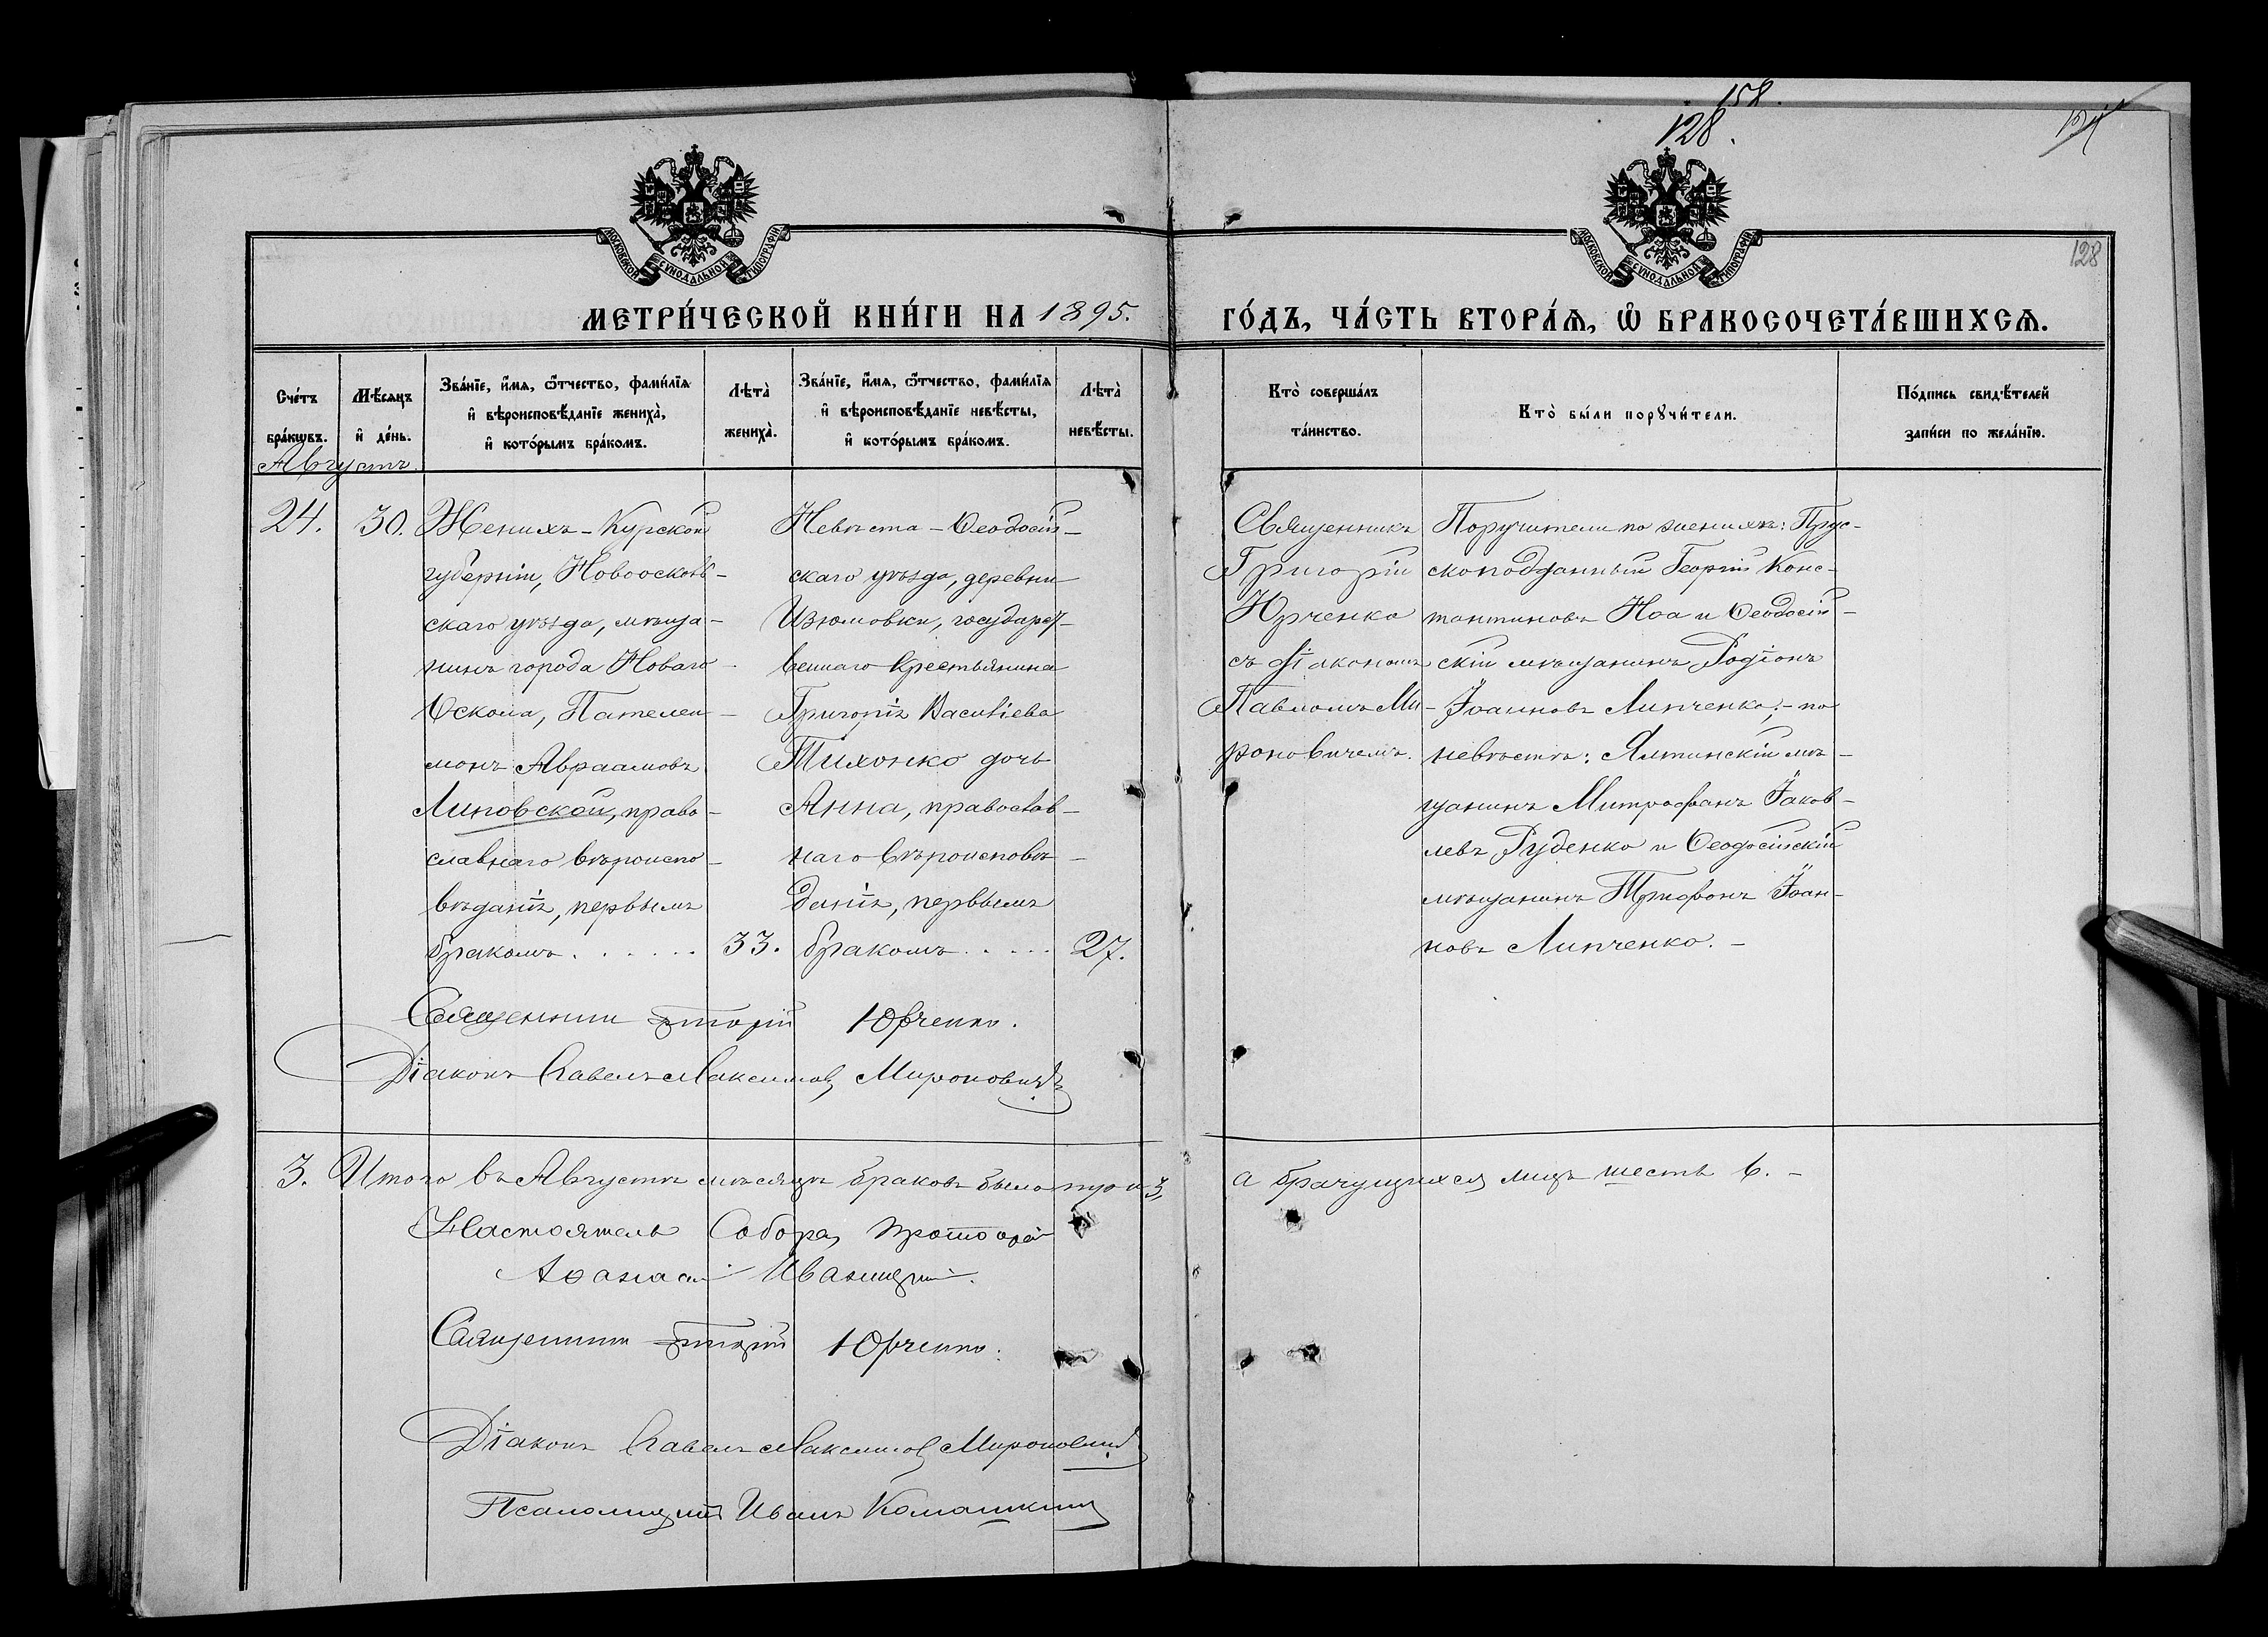 158.
128.
128
МОСКОВСКОЙ СУНОДАЛЬНОЙ ТИПОГРАФІИ
МОСКОВСКОЙ СУНОДАЛЬНОЙ ТИПОГРАФІИ
МЕТРИ́ЧЕСКОЙ КНИ́ГИ НА 1895. ГО́ДЪ, ЧА́СТЬ ВТОРА́Ѧ, Ѡ҆ БРАКОСОЧЕТА́ВШИХСѦ.
Сче́тъ
бра́кѡвъ.
Мѣ́сѧцъ
и҆ де́нь.
Зва́нїе, и҆́мѧ, ѻ҆́тчество, фамѝлїѧ
и҆ вѣроисповѣ́данїе жениха̀,
и҆ кото́рымъ бра́комъ.
Лѣта̀
жениха̀.
Зва́нїе, и҆́мѧ, ѻ҆́тчество, фамѝлїѧ
и҆ вѣроисповѣ́данїе невѣ́сты,
и҆ кото́рымъ бра́комъ.
Лѣта̀
невѣ́сты.
Кто̀ соверша́лъ
та́инство.
Кто̀ бы́ли порꙋчи́тели.
По́дпись свидѣ́телей
за́писи по жела́нїю.
Августъ.
24.
30.
Женихъ - Курской
губерніи, Новоосколь-
скаго уѣзда, мѣща-
нинъ города Новаго
Оскола, Пателей-
монъ Авраамовъ
Липовской, право-
славнаго вѣроиспо-
вѣданія, первымъ
бракомъ . . . . . .
33.
Невѣста - Ѳеодосій-
скаго уѣзда, деревни
Изюмовки, государст-
веннаго крестьянина
Григорія Василіева
Тихонко дочь
Анна, православ-
наго вѣроисповѣ-
данія, первымъ
бракомъ . . . . .
27.
Священникъ
Григорій
Юрченко
съ діакономъ
Павломъ Ми-
роновичемъ.
Поручители по женихѣ: Прус-
скоподданный Георгій Конс-
тантиновъ Ноа и Ѳеодосій-
скій мѣщанинъ Родіонъ
Іоанновъ Липченко; - по
невѣстѣ: Ялтинскій мѣ-
щанинъ Митрофанъ Іаков-
левъ Руденко и Ѳеодосійскій
мѣщанинъ Трифонъ Іоан-
новъ Липченко. -
Священникъ Григорій Юрченко.
Діаконъ Павелъ Максимовъ Мироновичъ
3. Итого въ Августѣ мѣсяцѣ браковъ было три 3, а брачущихся лицъ шесть 6. -
Настоятель Собора, Протоіерей
Аѳанасій Иваницкій.
Священникъ Григорій Юрченко.
Діаконъ Павелъ Максимовъ Мироновичъ
Псаломщикъ Иванъ Комашкинъ